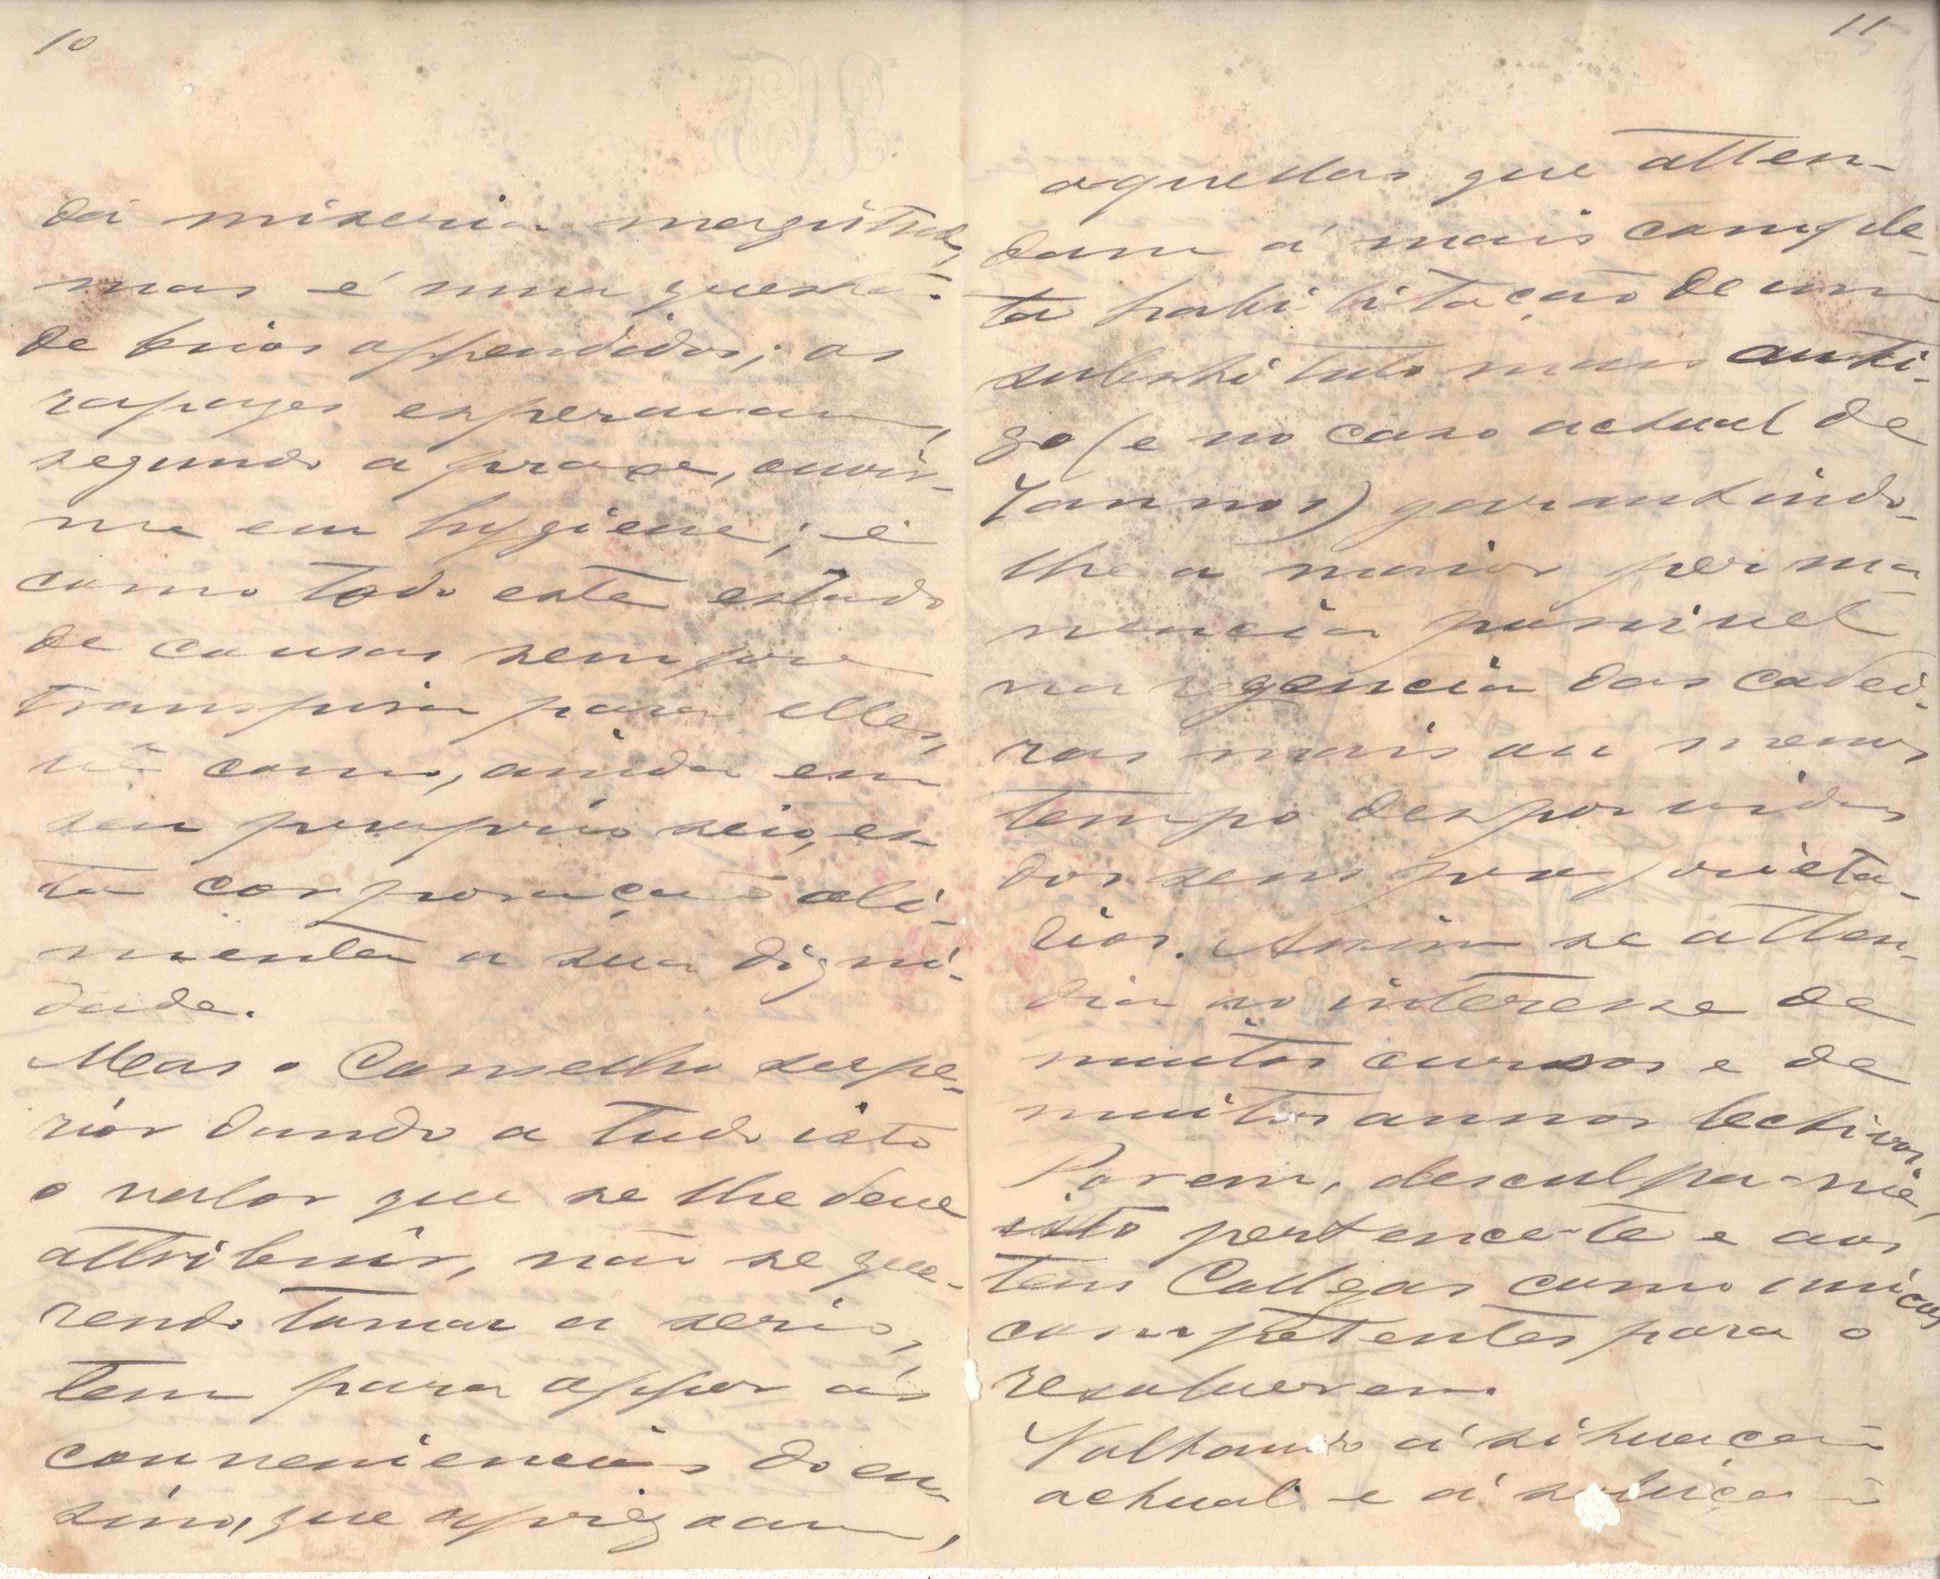 10
da miseria magistral,
mas é uma questão
de brios offendidos; os
rapazes esperavam,
segundo a praxe, ouvir-
me em hygiene; e
como todo este estado
de cousas sempre
transpira para elles,
vê como, ainda em
seu proprio seio, es-
ta corporação ali-
menta a sua digni-
dade.
Mas o Conselho supe-
rior dando a tudo isto
o valor que se lhe deve
attribuir, não se que-
rendo tomar a serio,
tem para oppor ás
conveniencias do en-
sino, que apregoam,
11
aquellas que atten-
dam á mais comple-
ta habilitação de um
substituto mais anti-
go (e no caso actual de
7 annos) garantindo-
lhe a maior perma-
nencia possivel
na regencia das cadei-
ras mais ou menos
tempo desporvidas
dos seus proprieta-
rios. Assim se atten-
dia ao interesse de
muitos cursos e de
muitos annos lectivos.
Porem, desculpa-me,
isto pertence-te e aos
teus Collegas como unicos
competentes para o
resolverem.
Voltando á situação
actual e á solução